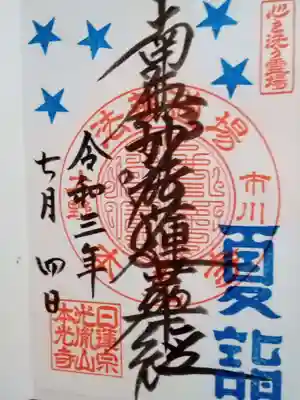 心を洗う霊場
南無妙法蓮華経
市川
大野
令和三年
七月四日
夏詣
日蓮宗
光胤山
本光寺